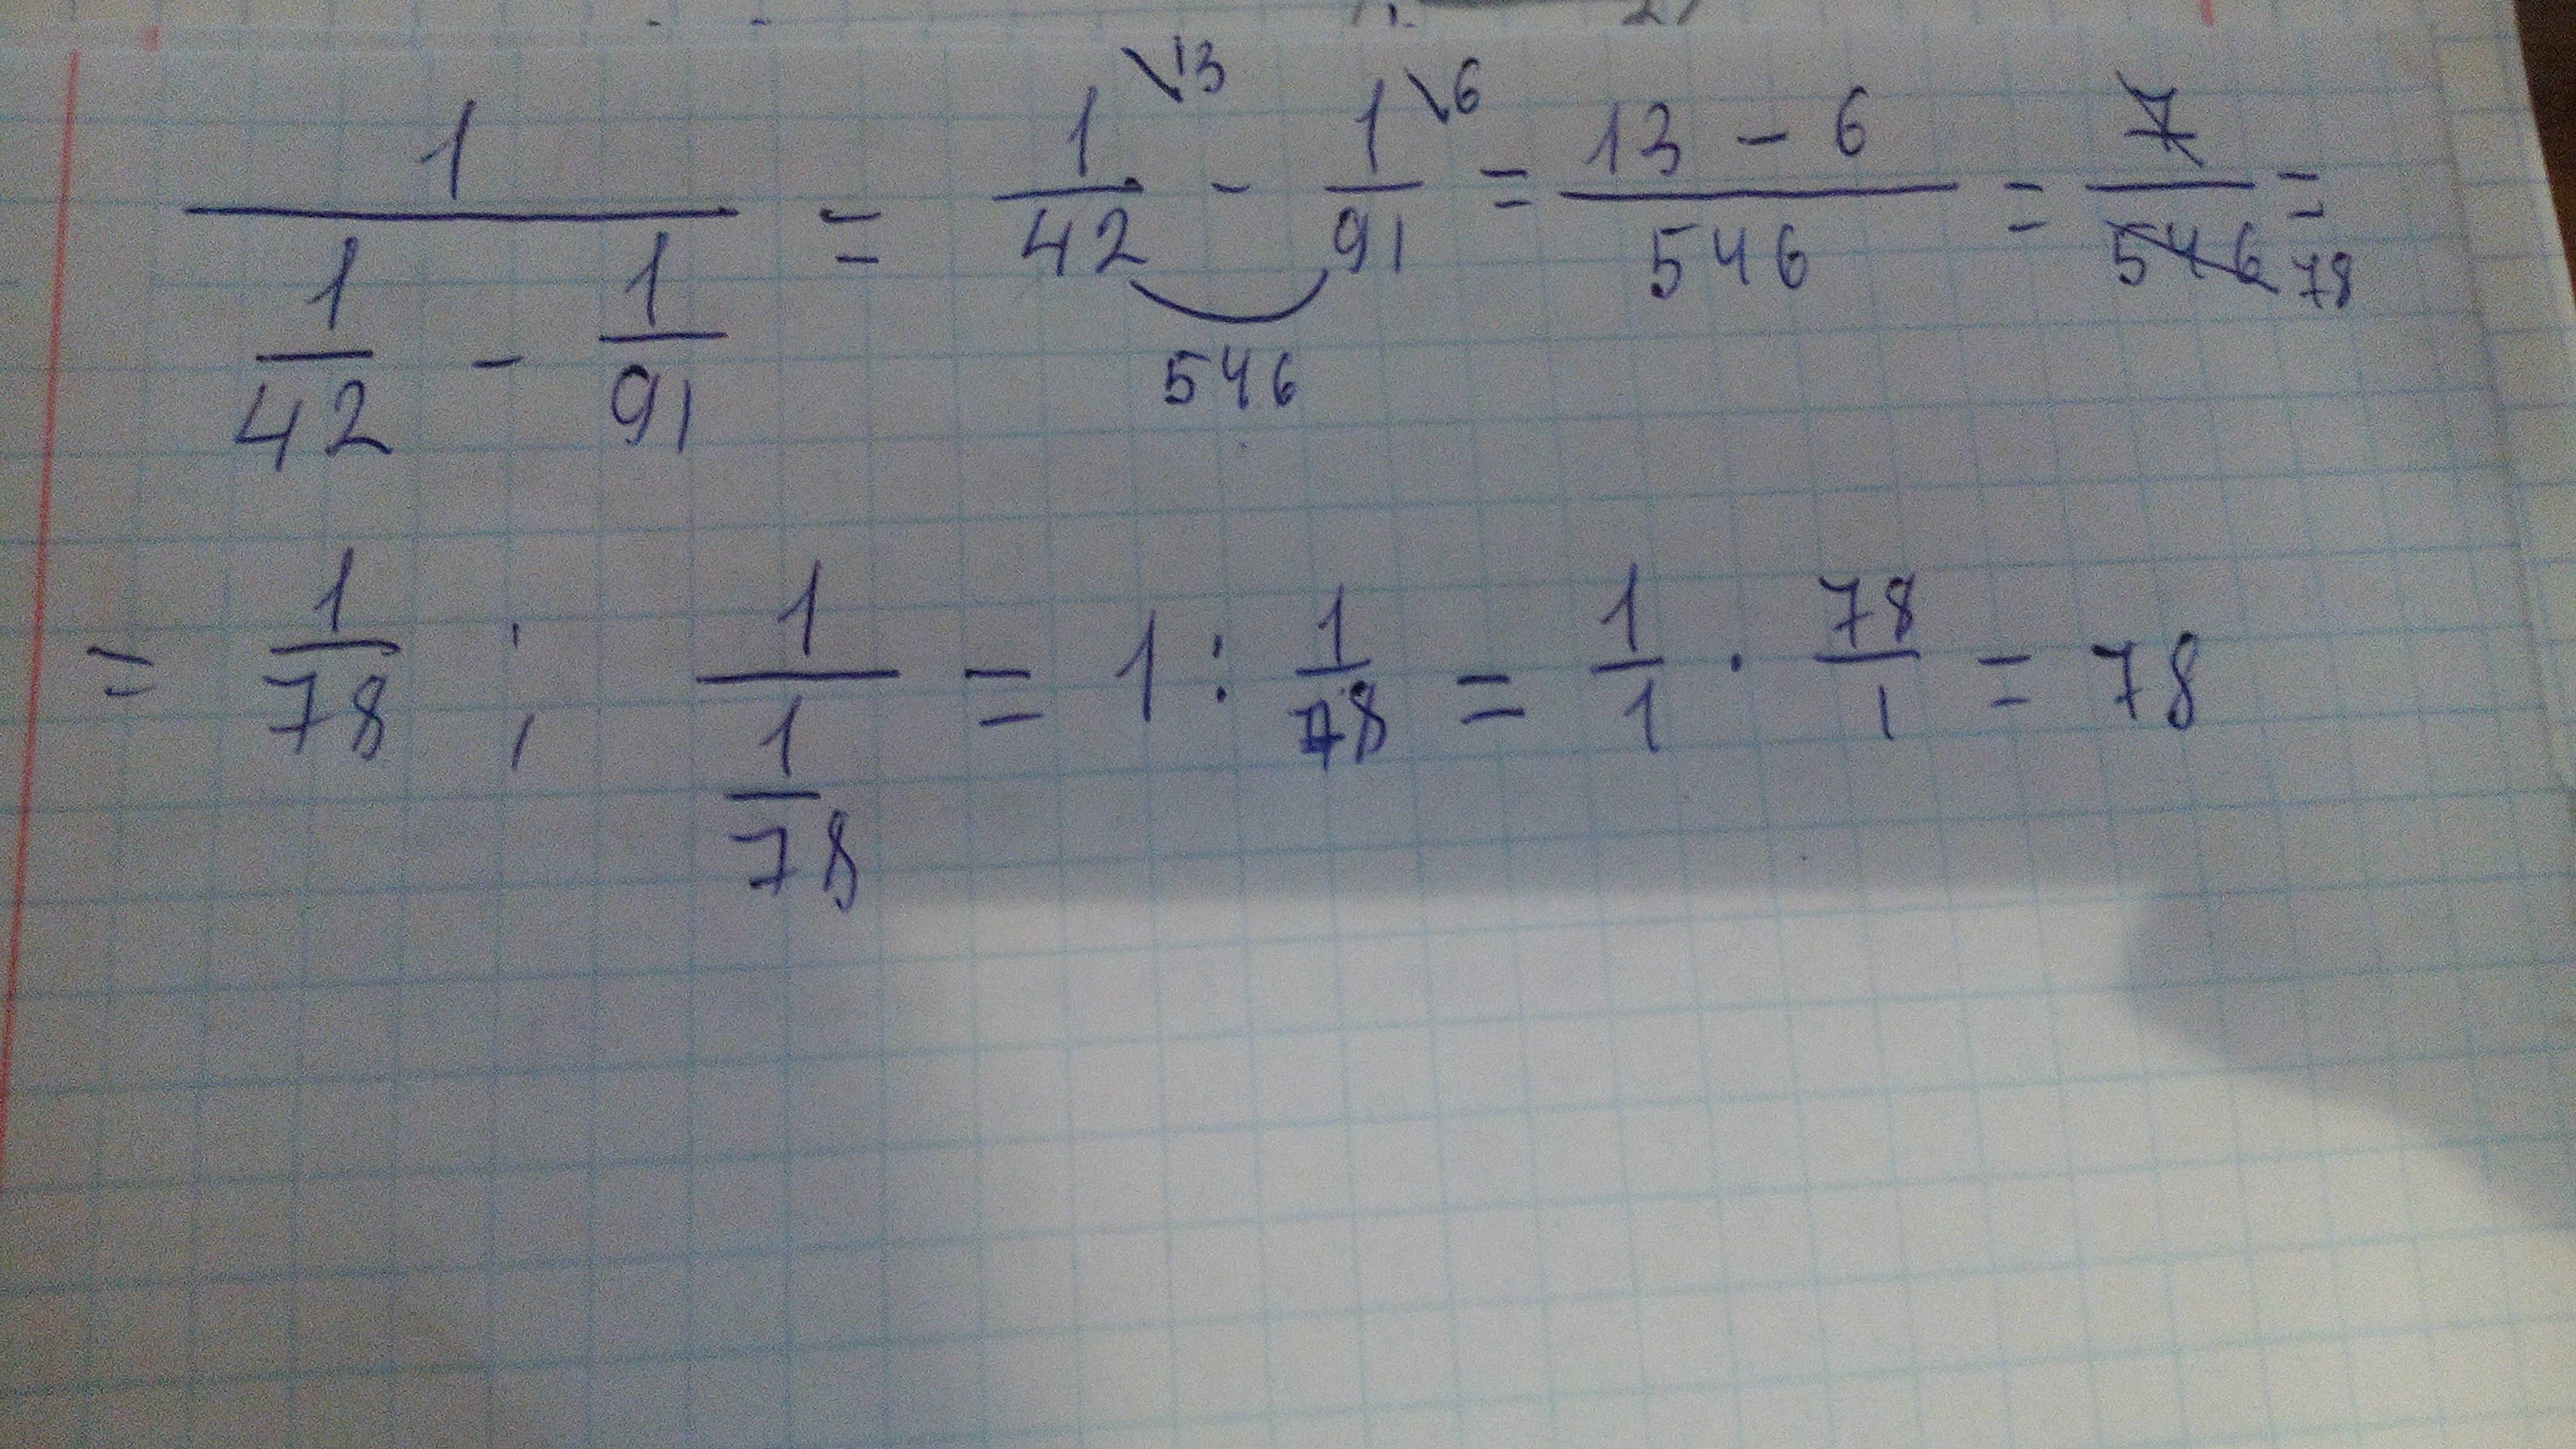 1/(1/42 - 1/91) = 1/42 \13 - 1/91 \6 = (13 - 6)/546 = 7/546 78 =
546
= 1/78 ; 1/(1/78) = 1 : 1/78 = 1/1 · 78/1 = 78